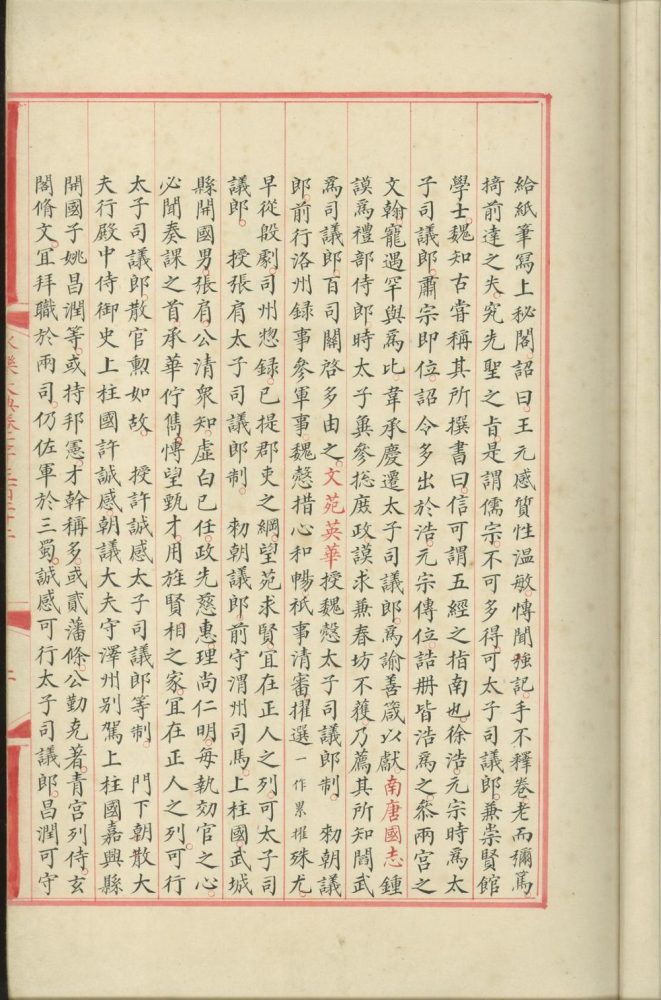 給紙筆寫上秘閣。詔曰。王元感質性温敏。博聞強記。手不釋卷。老而彌篤。
掎前達之失。究先聖之旨。是謂儒宗。不可多得。可太子司議郎。兼崇賢館
學士。魏知古嘗稱其所撰書曰。信可謂五經之指南也。徐浩。元宗時爲太
子司議郎。肅宗即位。詔令多出於浩。元宗傳位。誥册皆浩爲之。叅兩宮之
文翰。寵遇罕與爲比。韋承慶遷太子司議郎。爲諭善箴以獻。南唐國志鍾
謨爲禮部侍郎。時太子兾叅捴庶政。謨求兼春坊不獲。乃薦其所知閻武
爲司議郎。百司關啓多由之。文苑英華授魏愨太子司議郎制。 勑朝議
郎。前行洛州録事參軍事。魏愨措心和暢。祗事清審。擢選一作累擢殊尤。
早從殷劇。司州惣録。已提郡吏之綱。望苑求賢。宜在正人之列。可太子司
議郎。 授張肩太子司議郎制。 勑朝議郎前守渭州司馬。上柱國。武城
縣開國男。張肩。公清衆知。虚白已任。政先慈惠。理尚仁明。每執効官之心。
必聞奏課之首。承華佇儁。博望甄才。用旌賢相之家。宜在正人之列。可行
太子司議郎。散官勲如故。 授許誠感太子司議郎等制。 門下朝散大
夫行殿中侍御史上柱國許誠感。朝議大夫守澤州别駕上柱國嘉興縣
開國子姚昌潤等。或持邦憲。才幹稱多。或貳藩條。公勤克著。青宮列侍。玄
閣脩文。宜拜職於兩司。仍佐軍於三蜀。誠感可行太子司議郎。昌潤可守